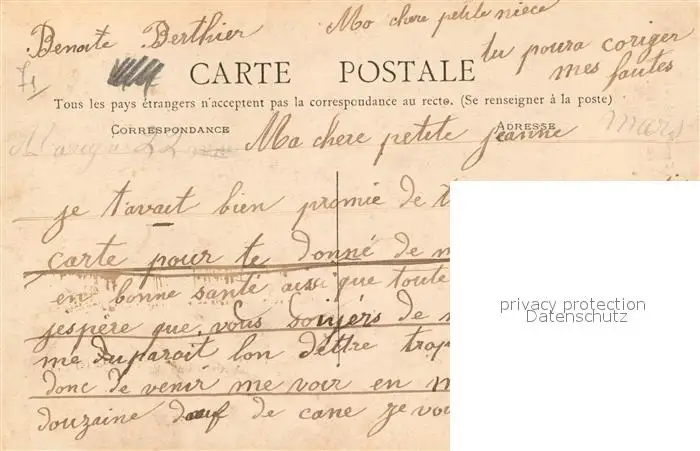 Benoite Berthier
Ma chere petite niece
tu poura coriger
mes fautes
71
CARTE POSTALE
Tous les pays étrangers n'acceptent pas la correspondance au recto. (Se renseigner à la poste)
CORRESPONDANCE
ADRESSE
22
mars
Ma chere petite jeanne
je t'avait bien promie de t
carte pour te donné de n
en bonne santé aissi que toute
jespère que vous soiyérs de
me duparait lon dettre trop
donc de venir me voir en m
douzaine dœuf de cane je vou
privacy protection
Datenschutz